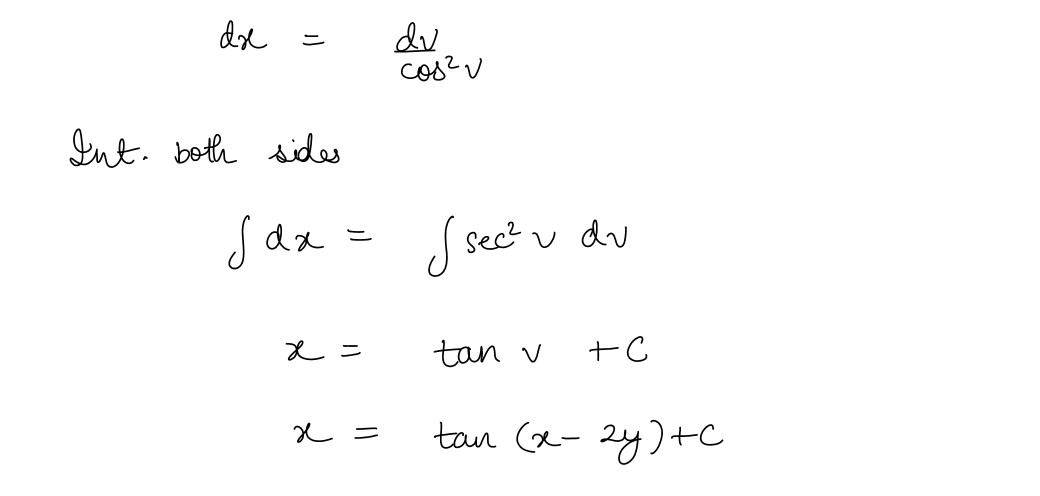 dx = dv/cos²v
Int. both sides
∫dx = ∫sec² v dv
x = tan v + C
x = tan (x - 2y) + C